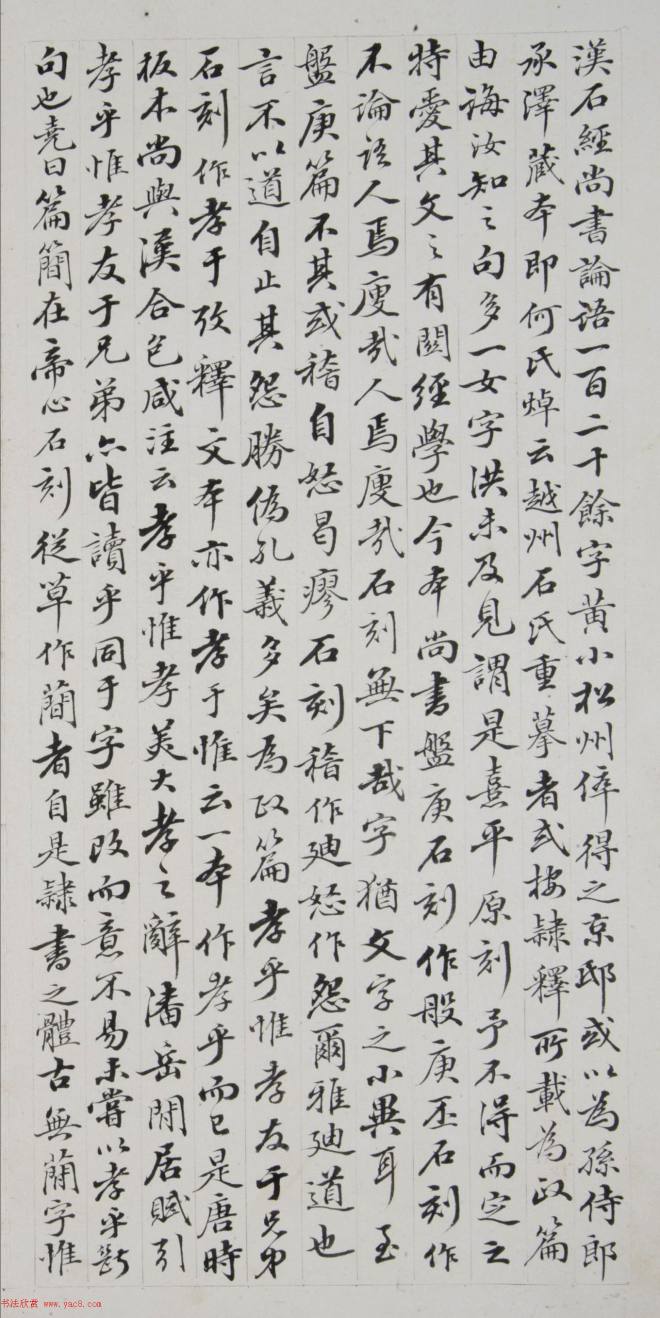 漢石經尚書論語一百二十餘字黃小松州倅得之京邸或以為孫侍郎
承澤藏本即何氏焯云越州石氏重摹者或按隸釋所載為政篇
由誨汝知之句多一女字洪未及見謂是熹平原刻予不得而定之
特愛其文之有關經學也今本尚書盤庚石刻作般庚丕石刻作
不論語人焉廋哉人焉廋哉石刻無下哉字猶文字之小異耳至
盤庚篇不其或稽自怒曷瘳石刻稽作迪怒作怨爾雅迪道也
言不以道自止其怨勝偽孔義多矣為政篇孝乎惟孝友于兄弟
石刻作孝于攷釋文本亦作孝于惟云一本作孝乎而已是唐時
板本尚與漢合包咸注云孝乎惟孝美大孝之辭潘岳閒居賦引
孝乎惟孝友于兄弟亦皆讀乎同于字雖改而意不易未嘗以孝乎斷
句也堯曰篇簡在帝心石刻從草作蕳者自是隸書之體古無蕳字惟
书法欣赏 www.yac8.com